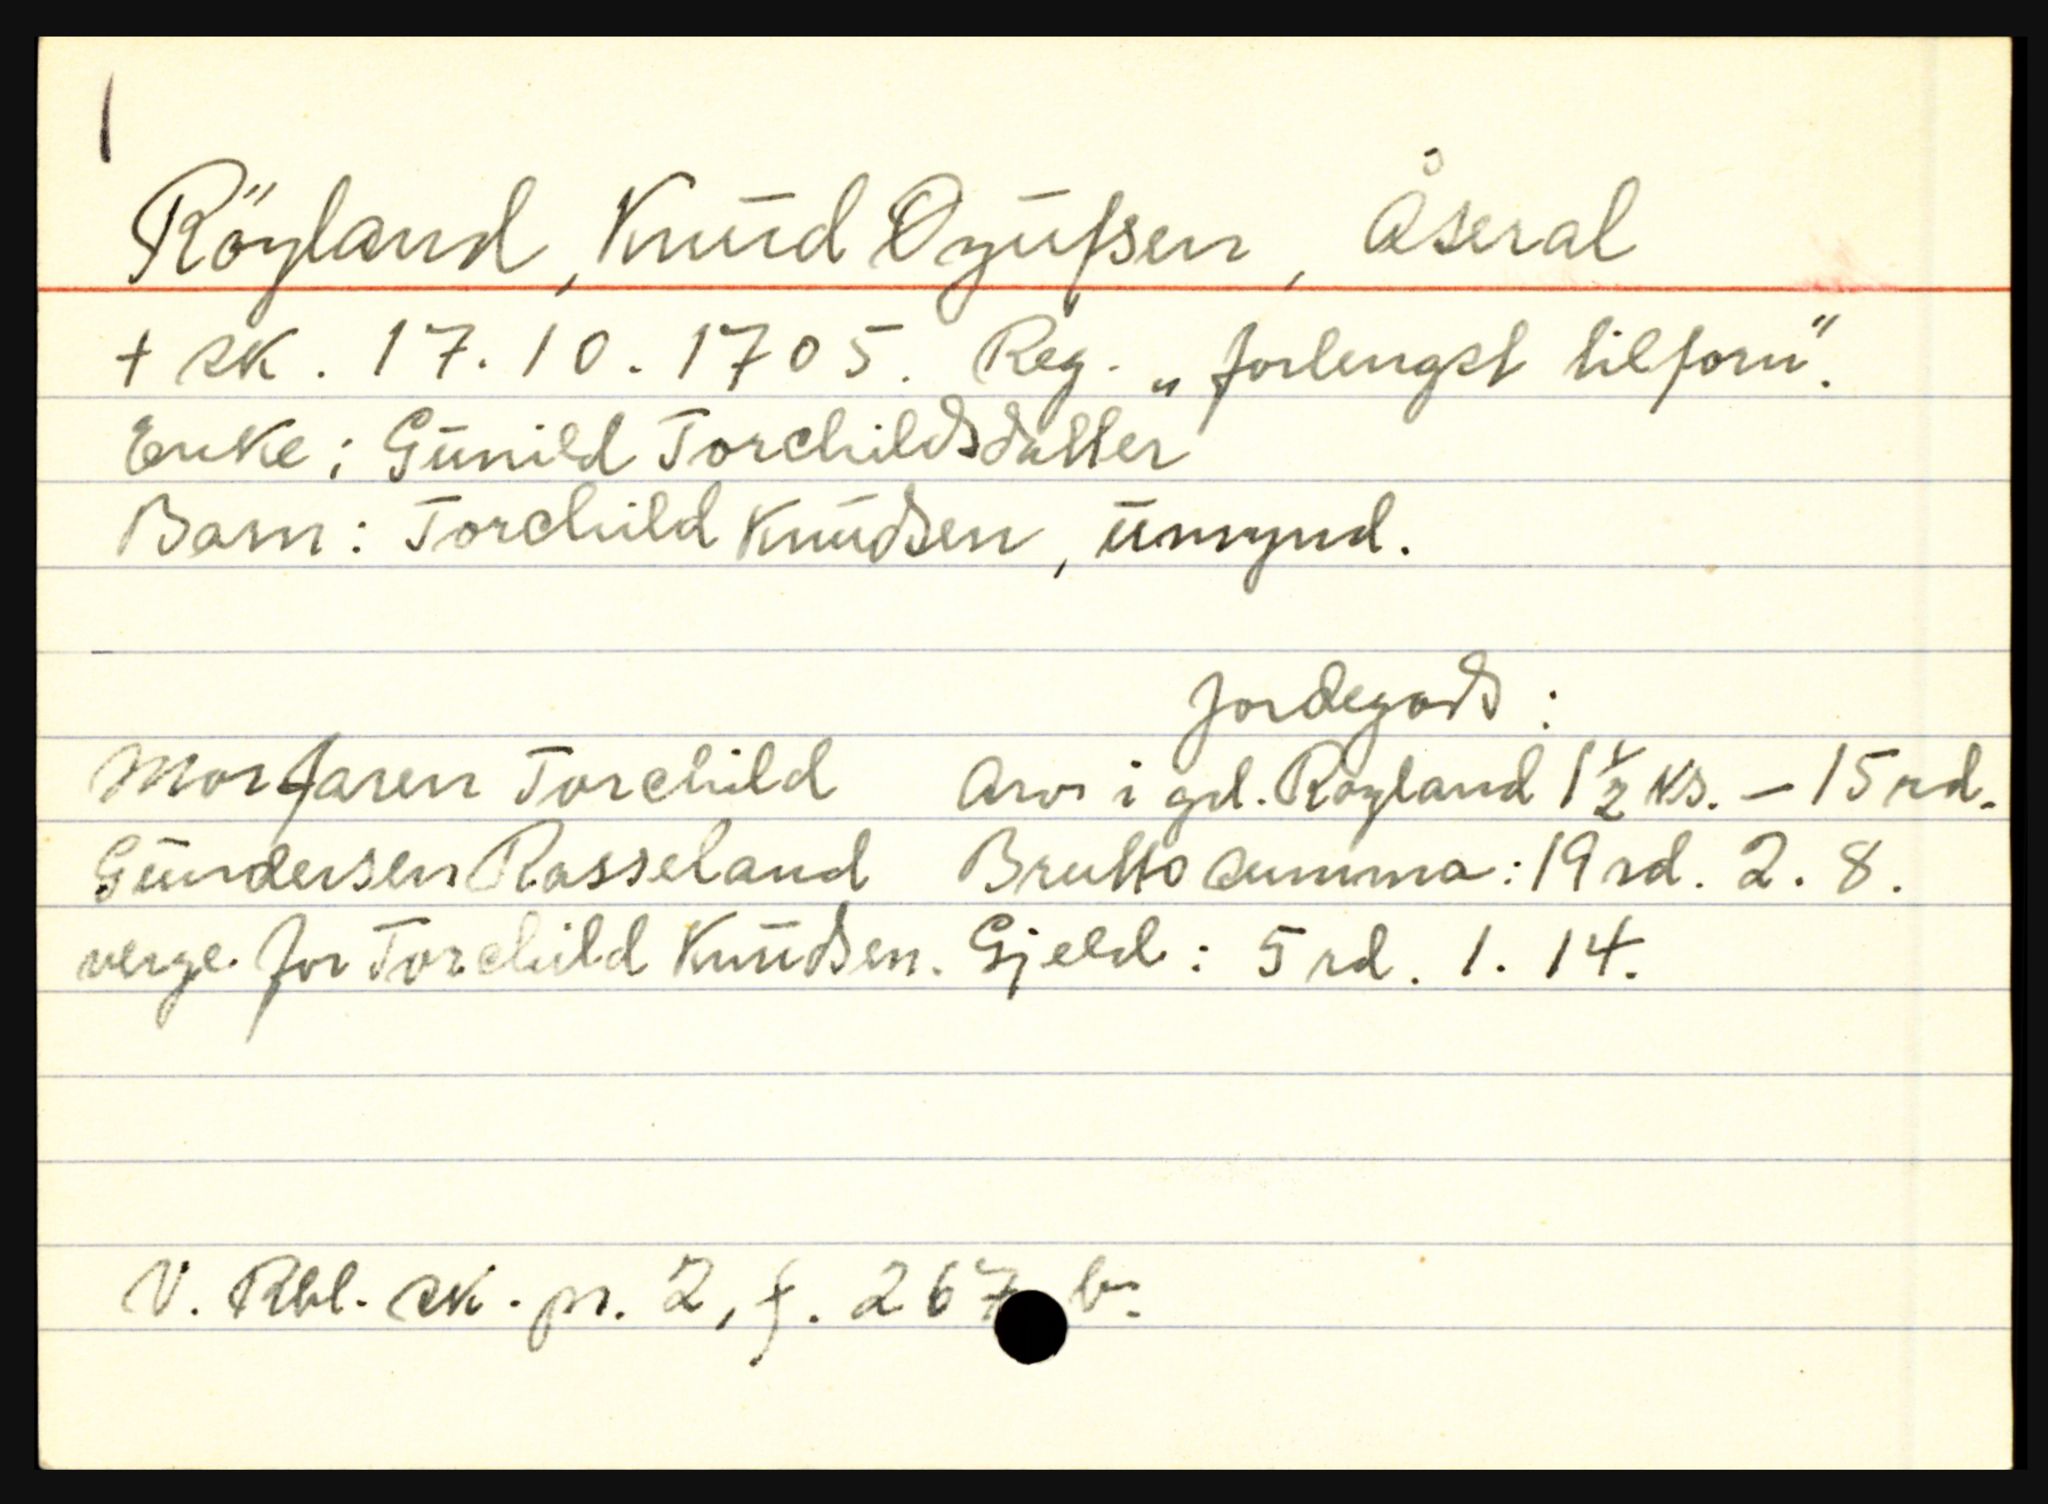 1
Röyland, Knud Ozufsen, Åseral
+ sk. 17.10.1705. Reg. „forlengst tilforn".
Enke: Gunild Torchildsdatter
Barn: Torchild Knudsen, umynd.
Jordegods:
Morfaren Torchild Arv i gd. Röyland 1½ ks. – 15 rd.
Gundersen Rosseland Brutto summa: 19 rd. 2. 8.
verge for Torchild Knudsen. Gjeld: 5 rd. 1. 14.
V. Rbl. sk. pr. 2, f. 267 b.